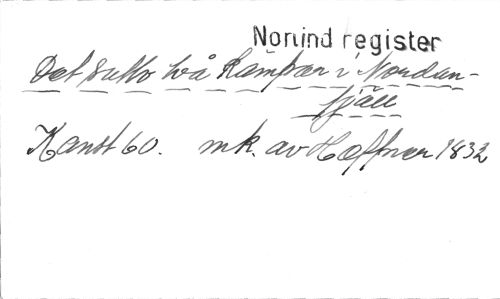 Nonind register
Det sutto två Kämpar i Nordan-
fjäll
Kanst 60. mk. av Hæffner 1832